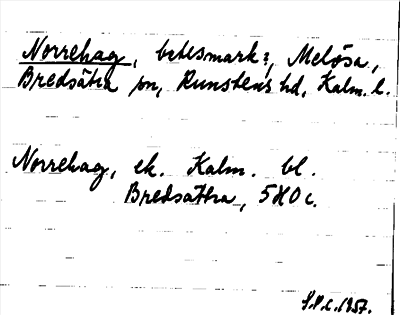 Norrehag, betesmark?, Melösa,
Bredsätra sn, Runstens hd, Kalm. l.
Norrehag, ek. Kalm. bl.
Bredsättra, 5H0c.
1957.